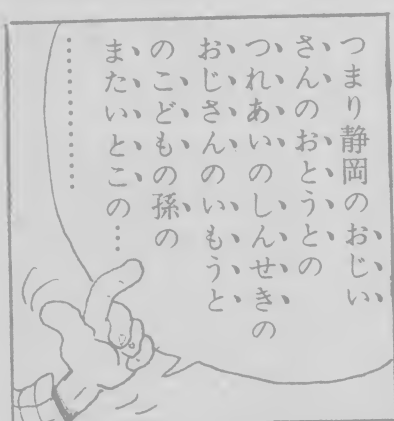 つまり静岡のおじい
さんのおとうとの
つれあいのしんせきの
おじさんのいもうと
のこどもの孫の
またいとこの…
…………